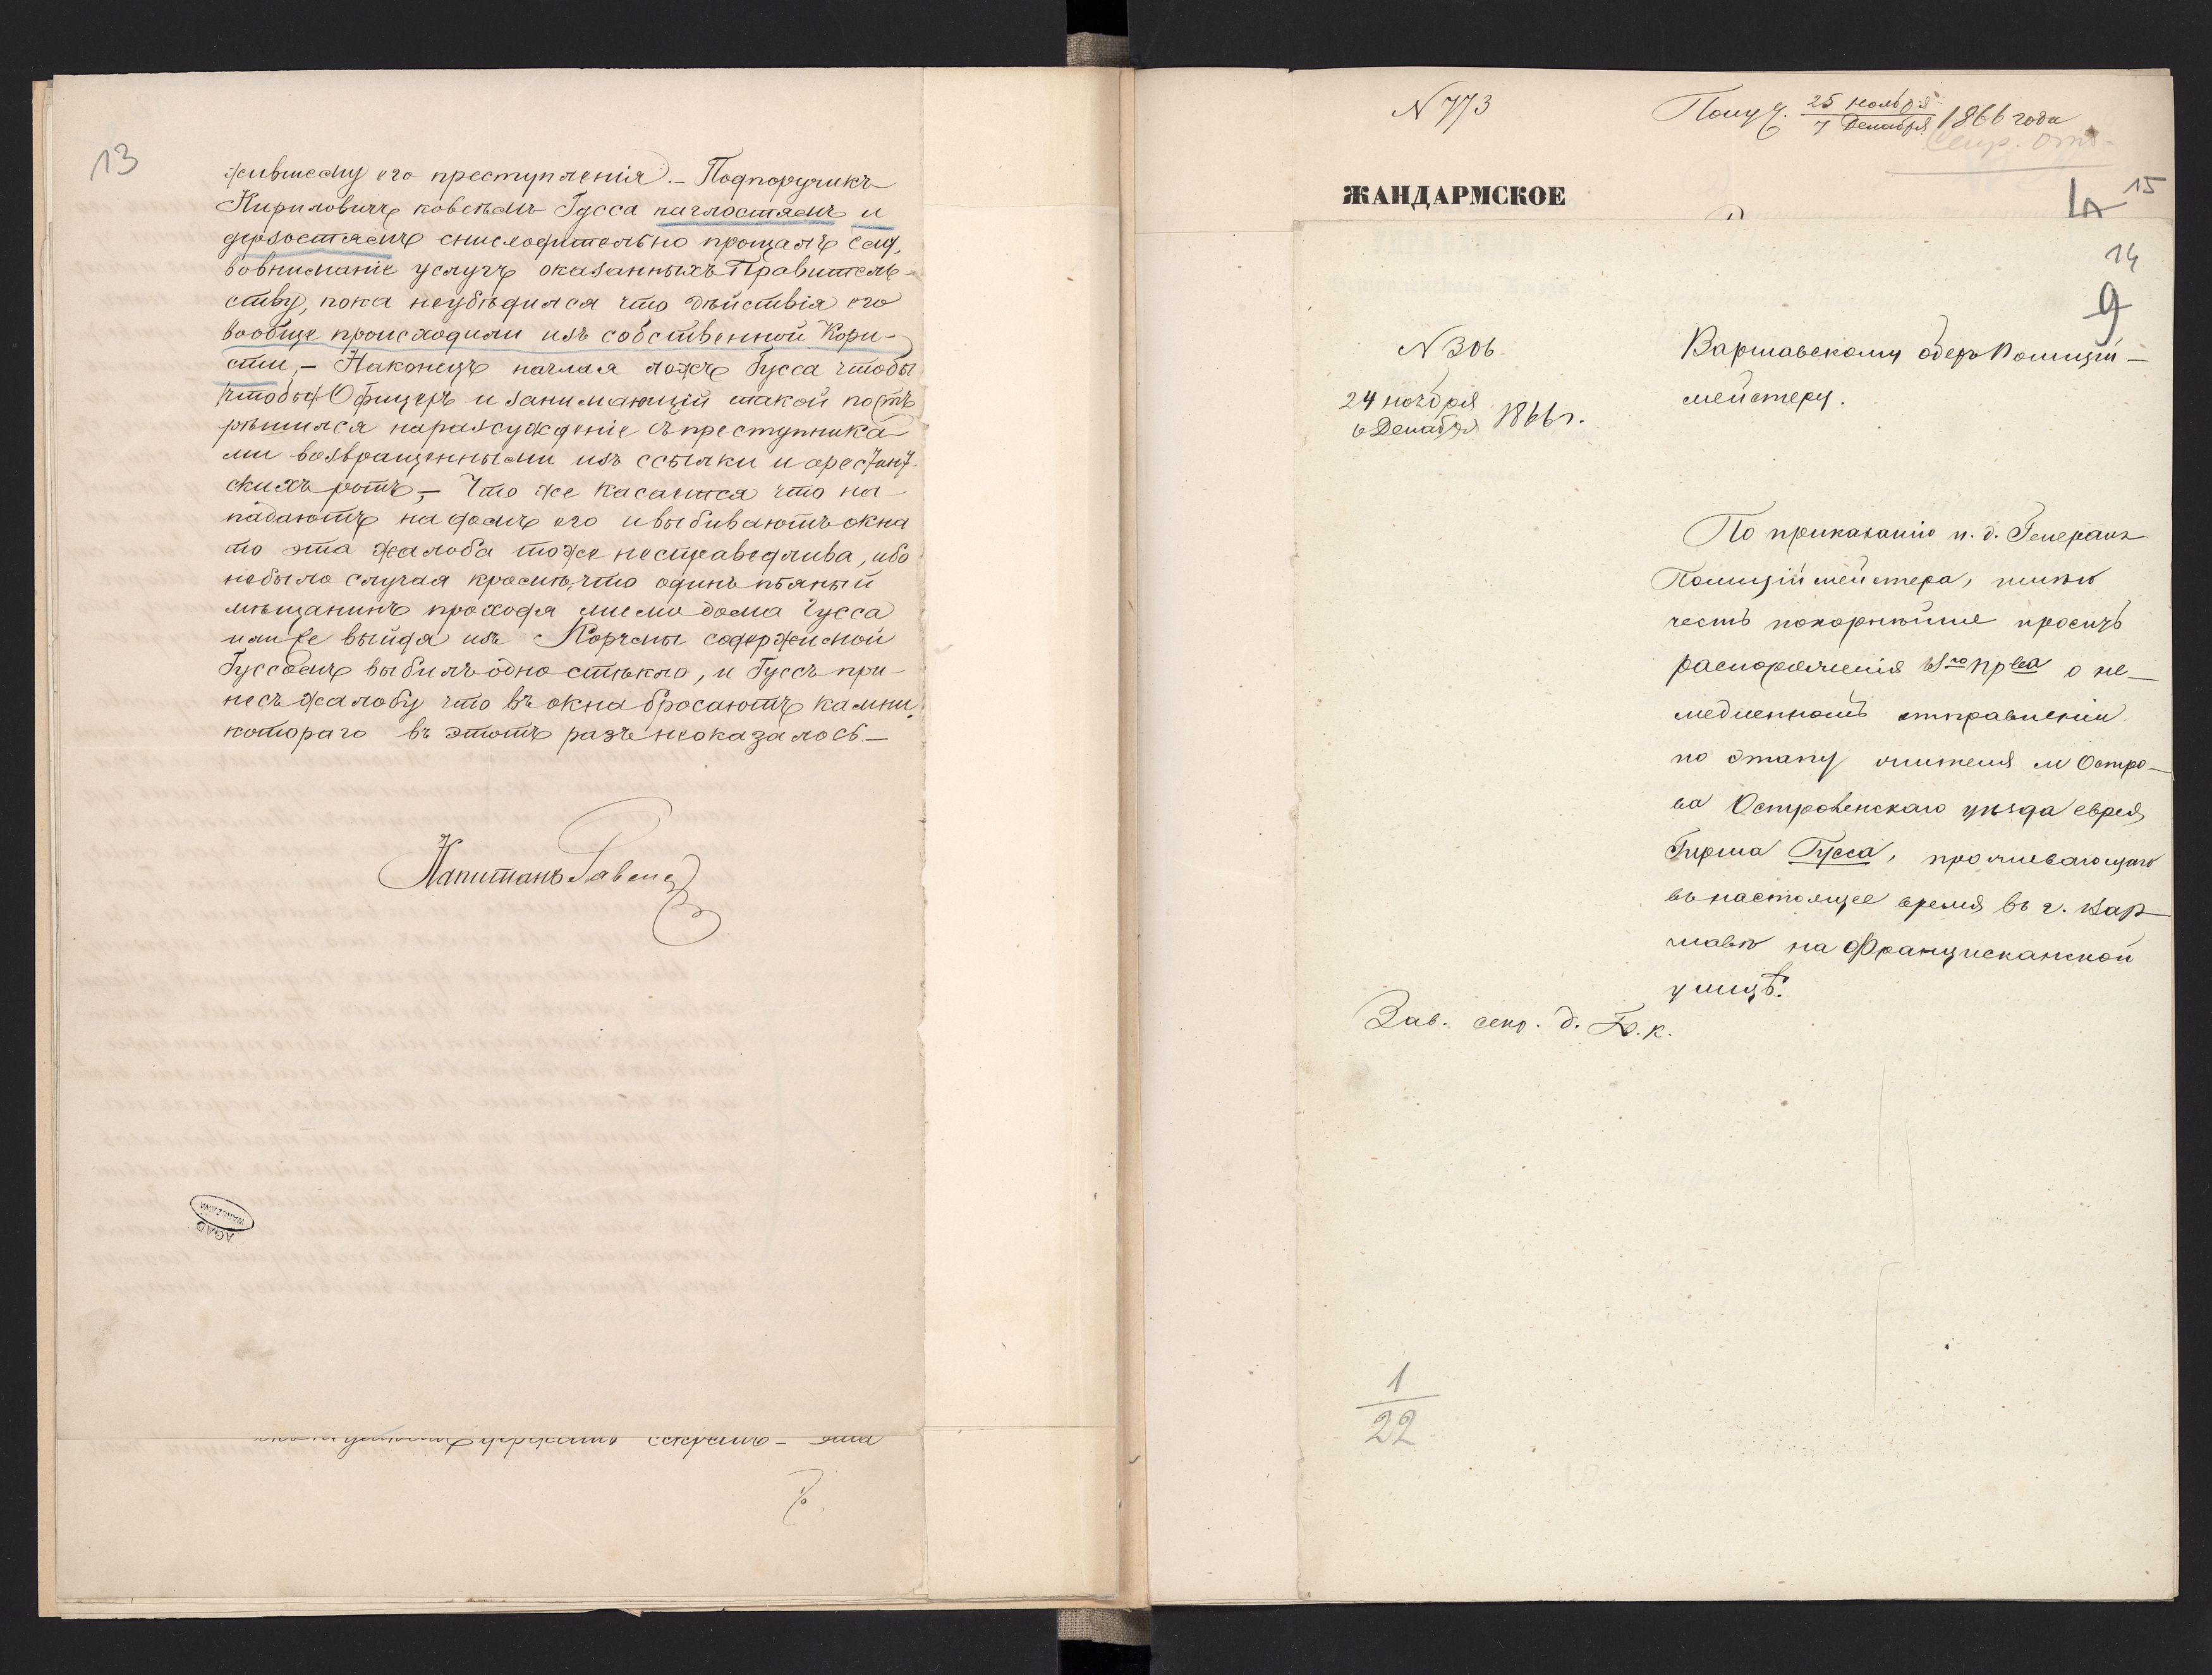 13
жившему его преступленія. — Подпоручикъ
Кириловичъ ковсѣмъ Гусса наглостямъ и
дерзостямъ снисходительно прощалъ ему,
вовниманіе услугъ оказанныхъ Правитель-
ству, пока неубѣдился что дѣйствія его
вообще происходили изъ собственной Коры-
сти, — Наконецъ наглая ложъ Гусса чтобы
чтобы Офицеръ и занимающій такой постъ
рѣшился на разсужденіе съ преступника-
ми возвращенными изъ ссылки и арестант-
скихъ ротъ, — Что же касается что на-
падаютъ на домъ его и выбиваютъ окна
то эта жалоба тоже несправедлива, ибо
небыло случая кромѣ, что одинъ пьяный
мѣщанинъ проходя мимо дома Гусса
или же выйдя изъ Корчмы содержимой
Гуссомъ выбилъ одно стѣкло, и Гуссъ при-
несъ жалобу что въ окна бросаютъ камни,
котораго въ этотъ разъ неоказалось. —
Капитанъ
AGAD
WARSZAWA
секретъ — эта
N 773
Получ. 25 ноября
7 Декабря 1866 года
Секр. отд.
ЖАНДАРМСКОЕ
15
14
9
N 306.
24 ноября
6 Декабря 1866 г.
Варшавскому оберъ Полицій-
мейстеру.
По приказанію и. д. Генералъ
Полиціймейстера, имѣю
честь покорнѣйше просить
распоряженія Ва о не-
медленномъ отправленіи
по этапу жителя м Остро-
ва Островскаго уѣзда еврея
Гирша Гусса, проживающаго
въ настоящее время въ г. Вар-
шавѣ на Францисканской
улицѣ.
Зав. секр. д. к.
1
22